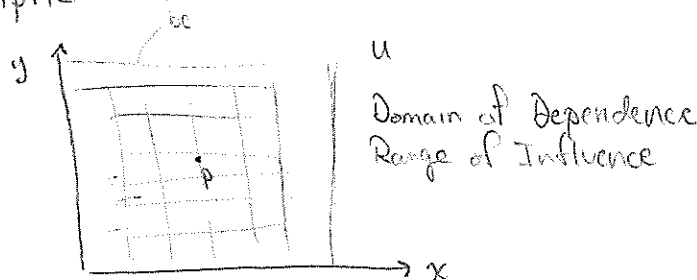 bc
y
u
Domain of Dependence
Range of Influence
P
x